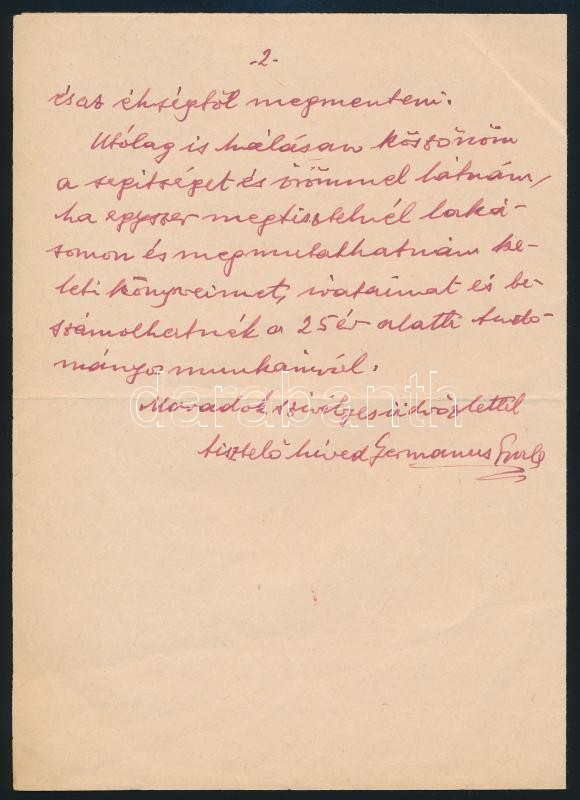 -2-
és az éhségtől megmenteni.
Utólag is hálásan köszönöm
a segitséget és örömmel látnám,
ha egyszer megtisztelnél laká-
somon és megmutathatnám ke-
leti könyveimet, irataimat és be-
számolhatnék a 25 év alatti tudo-
mányos munkáimról.
Maradok szivélyes üdvözlettel
tisztelő híved Germanus Gyula
darabanth